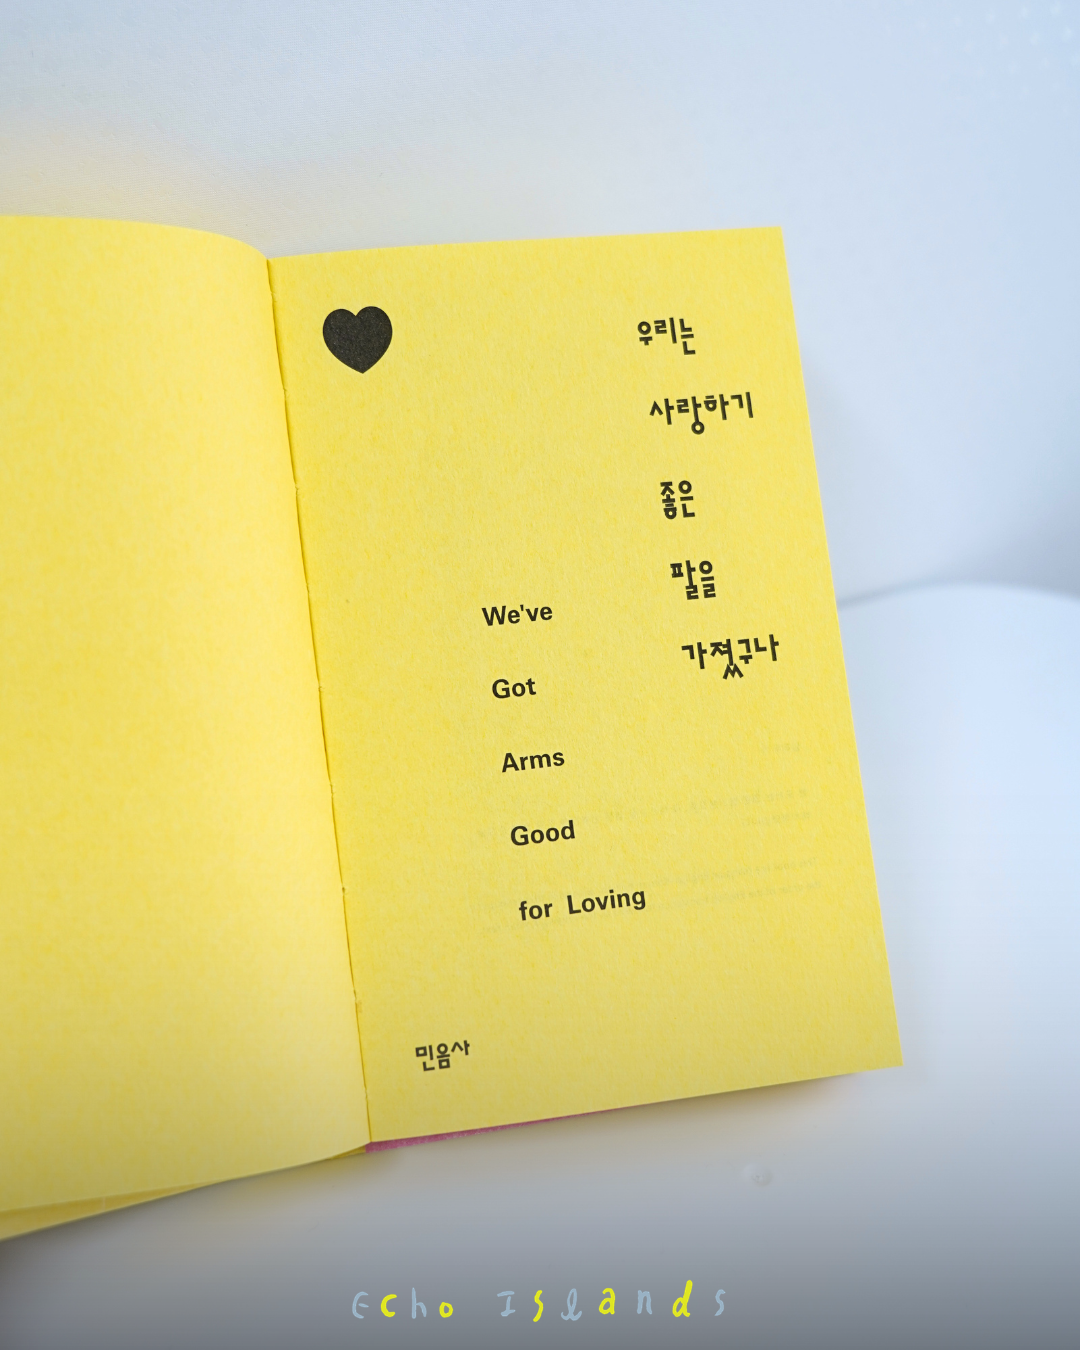 우리는
사랑하기
좋은
팔을
가졌구나
We've
Got
Arms
Good
for Loving
민음사
Echo Islands